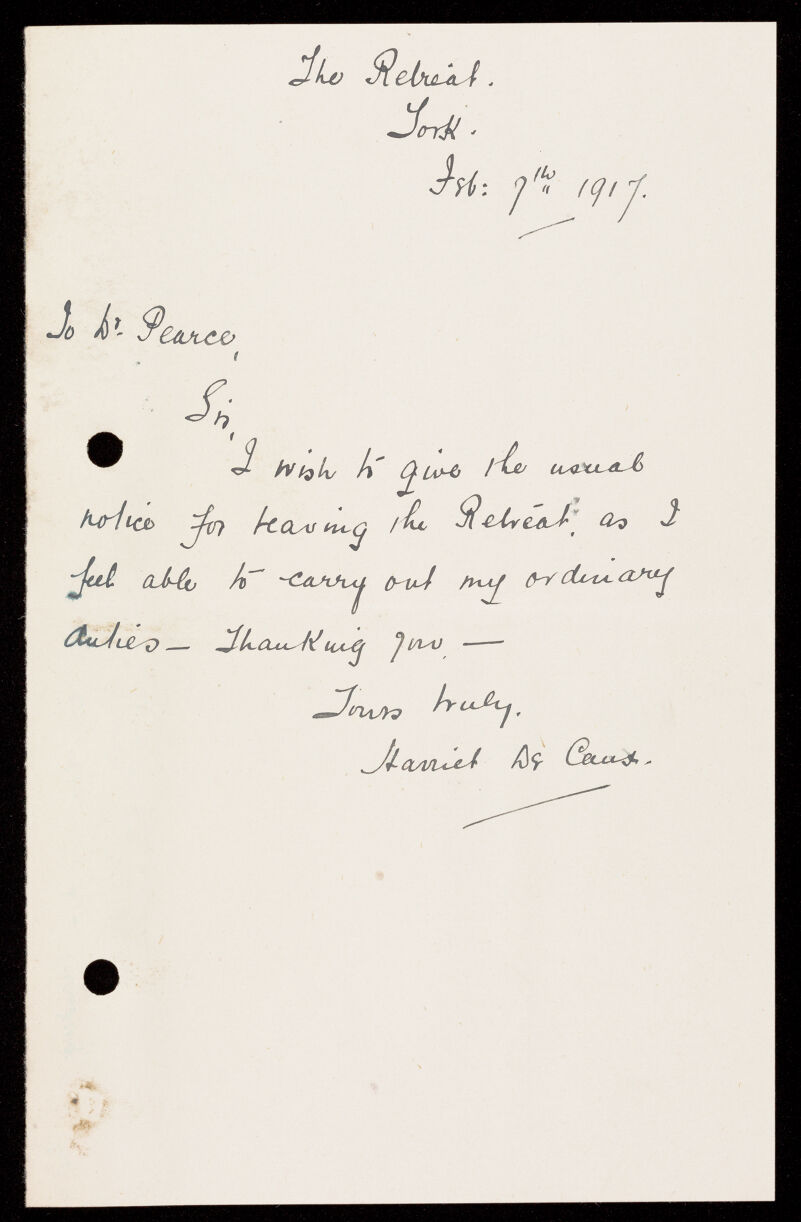 The Retreat.
York.
Feb: 7th 1917.
To Dr. Pearce,
Sir,
I wish to give the usual
notice for leaving the Retreat, as I
feel able to carry out my ordinary
duties — Thanking you, —
Yours truly.
Harriet De Caux.